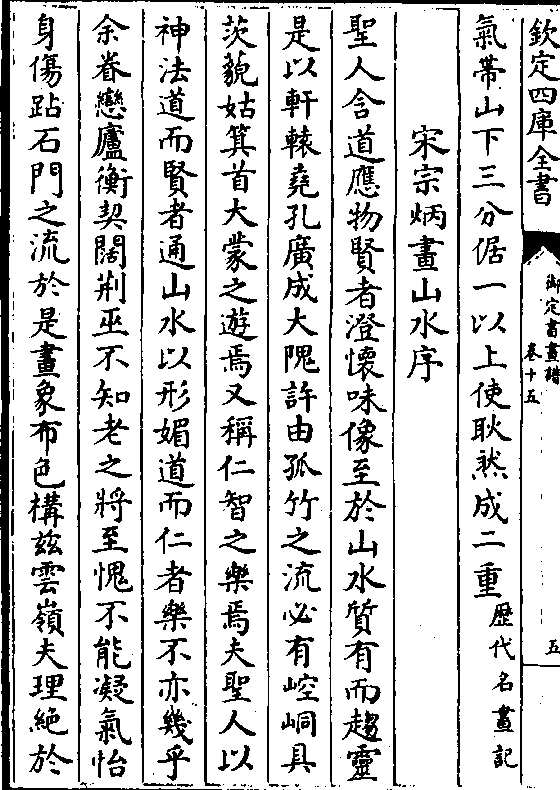 欽定四庫全書
御定書畫譜
卷十五
五
氣帶山下三分倨一以上使耿然成二重歷代名畫記
宋宗炳畫山水序
聖人含道應物賢者澄懷味像至於山水質有而趨靈
是以軒轅堯孔廣成大隗許由孤竹之流必有崆峒具
茨藐姑箕首大蒙之遊焉又稱仁智之樂焉夫聖人以
神法道而賢者通山水以形媚道而仁者樂不亦幾乎
余眷戀廬衡契闊荊巫不知老之將至愧不能凝氣怡
身傷跕石門之流於是畫象布色構茲雲嶺夫理絶於